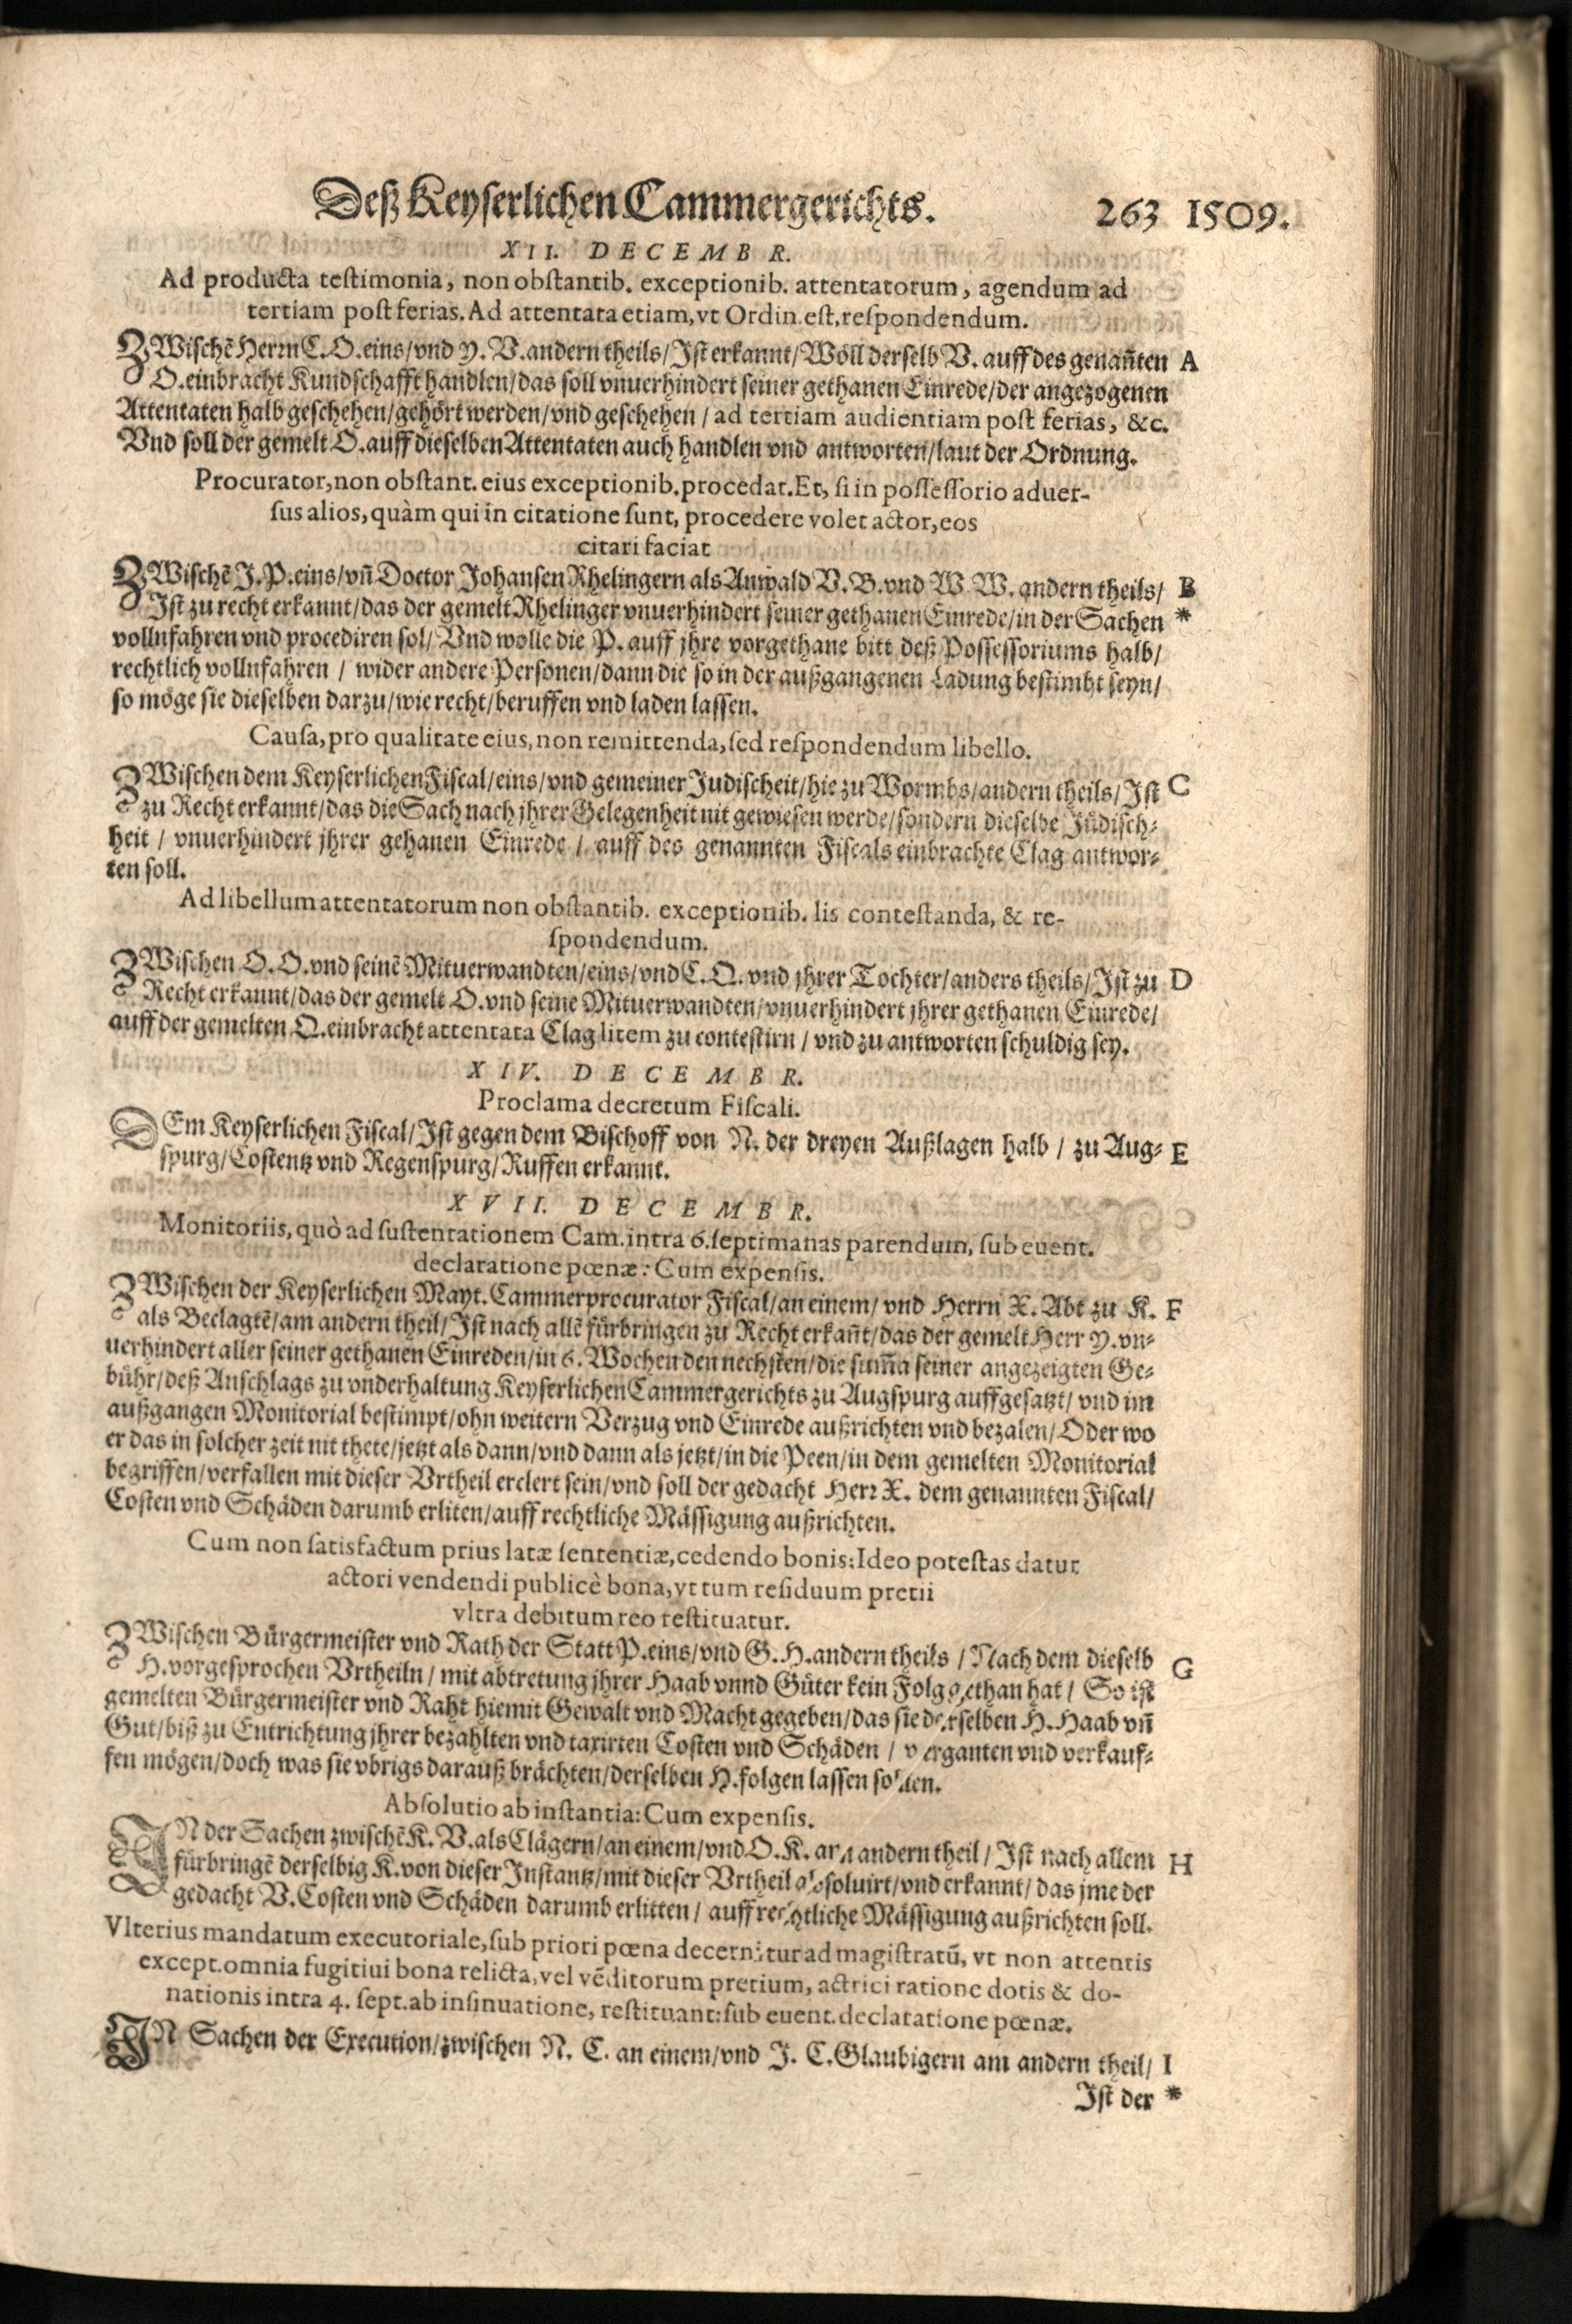 Deß Keyserlichen Cammergerichts. 263 1509.
XII. DECEMBR.
Ad producta testimonia, non obstantib. exceptionib. attentatorum, agendum ad
tertiam post ferias. Ad attentata etiam, vt Ordin. est, respondendum.
ZWischē Herrn C. O. eins/vnd Y. V. andern theils/Ist erkannt/Wöll derselb V. auff des genañten A
O. einbracht Kundschafft handlen/das soll vnuerhindert seiner gethanen Einrede/der angezogenen
Attentaten halb geschehen/gehört werden/vnd geschehen / ad tertiam audientiam post ferias, &c.
Vnd soll der gemelt O. auff dieselben Attentaten auch handlen vnd antworten/laut der Ordnung.
Procurator, non obstant. eius exceptionib. procedat. Et, si in possessorio aduer-
sus alios, quàm qui in citatione sunt, procedere volet actor, eos
citari faciat
ZWischē J. P. eins/vñ Doctor Johansen Rhelingern als Anwald V. B. vnd W. W. andern theils/ B
Ist zu recht erkannt/das der gemelt Rhelinger vnuerhindert seiner gethanen Einrede/in der Sachen *
vollnfahren vnd procediren sol/ Vnd wolle die P. auff jhre vorgethane bitt deß Possessoriums halb/
rechtlich vollnfahren / wider andere Personen/dann die so in der außgangenen Ladung bestimbt seyn/
so möge sie dieselben darzu/wie recht/beruffen vnd laden lassen.
Causa, pro qualitate eius, non remittenda, sed respondendum libello.
ZWischen dem Keyserlichen Fiscal/eins/vnd gemeiner Judischeit/hie zu Wormbs/andern theils/Ist C
zu Recht erkannt/das die Sach nach jhrer Gelegenheit nit gewiesen werde/sondern dieselbe Jüdisch-
heit / vnuerhindert jhrer gehanen Einrede / auff des genannten Fiscals einbrachte Clag antwor-
ten soll.
Ad libellum attentatorum non obstantib. exceptionib. lis contestanda, & re-
spondendum.
ZWischen O. O. vnd seinē Mituerwandten/eins/vnd C. Q. vnd jhrer Tochter/anders theils/Ist zu D
Recht erkannt/das der gemelt O. vnd seine Mituerwandten/vnuerhindert jhrer gethanen Einrede/
auff der gemelten Q. einbracht attentata Clag litem zu contestirn / vnd zu antworten schuldig sey.
XIV. DECEMBR.
Proclama decretum Fiscali.
DEm Keyserlichen Fiscal/Ist gegen dem Bischoff von N. der dreyen Außlagen halb / zu Aug- E
spurg/Costentz vnd Regenspurg/Ruffen erkannt.
XVII. DECEMBR.
Monitoriis, quò ad sustentationem Cam. intra 6. septimanas parendum, sub euent.
declaratione pœnæ: Cum expensis.
ZWischen der Keyserlichen Mayt. Cammerprocurator Fiscal/an einem/ vnd Herrn X. Abt zu K. F
als Beclagtē/am andern theil/Ist nach allē fürbringen zu Recht erkañt/das der gemelt Herr Y. vn-
uerhindert aller seiner gethanen Einreden/in 6. Wochen den nechsten/die sum̃a seiner angezeigten Ge-
bühr/deß Anschlags zu vnderhaltung Keyserlichen Cammergerichts zu Augspurg auffgesatzt/ vnd im
außgangen Monitorial bestimpt/ohn weitern Verzug vnd Einrede außrichten vnd bezalen/Oder wo
er das in solcher zeit nit thete/jetzt als dann/vnd dann als jetzt/in die Peen/in dem gemelten Monitorial
begriffen/verfallen mit dieser Vrtheil erclert sein/vnd soll der gedacht Herr X. dem genannten Fiscal/
Costen vnd Schäden darumb erliten/auff rechtliche Mässigung außrichten.
Cum non satisfactum prius latæ sententiæ, cedendo bonis: Ideo potestas datur
actori vendendi publicè bona, vt tum residuum pretii
vltra debitum reo restituatur.
ZWischen Bürgermeister vnd Rath der Statt P. eins/vnd G. H. andern theils / Nach dem dieselb G
H. vorgesprochen Vrtheiln / mit abtretung jhrer Haab vnnd Güter kein Folg gethan hat / So ist
gemelten Bürgermeister vnd Raht hiemit Gewalt vnd Macht gegeben/das sie derselben H. Haab vñ
Gut/biß zu Entrichtung jhrer bezahlten vnd taxirten Costen vnd Schäden / verganten vnd verkauf-
fen mögen/doch was sie vbrigs darauß brächten/derselben H. folgen lassen sollen.
Absolutio ab instantia: Cum expensis.
IN der Sachen zwischē K. V. als Clägern/an einem/vnd O. K. am andern theil / Ist nach allem H
fürbringē derselbig K. von dieser Instantz/mit dieser Vrtheil absoluirt/vnd erkannt/ das jme der
gedacht V. Costen vnd Schäden darumb erlitten / auff rechtliche Mässigung außrichten soll.
Vlterius mandatum executoriale, sub priori pœna decernitur ad magistratū, vt non attentis
except. omnia fugitiui bona relicta, vel vēditorum pretium, actrici ratione dotis & do-
nationis intra 4. sept. ab insinuatione, restituant: sub euent. declaratione pœnæ.
IN Sachen der Execution/zwischen N. C. an einem/vnd J. C. Glaubigern am andern theil/ I
Ist der *